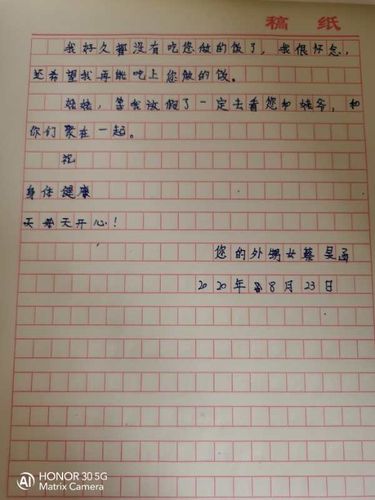 稿 纸
我好久都没有吃您做的饭了,我很怀念,
还希望我再能吃上您做的饭。
姥姥,等我放假了一定去看您和姥爷,和
你们聚在一起。
祝
身体健康
天天开心!
您的外甥女蔡昊函
2020年8月23日
HONOR 30 5G
Matrix Camera